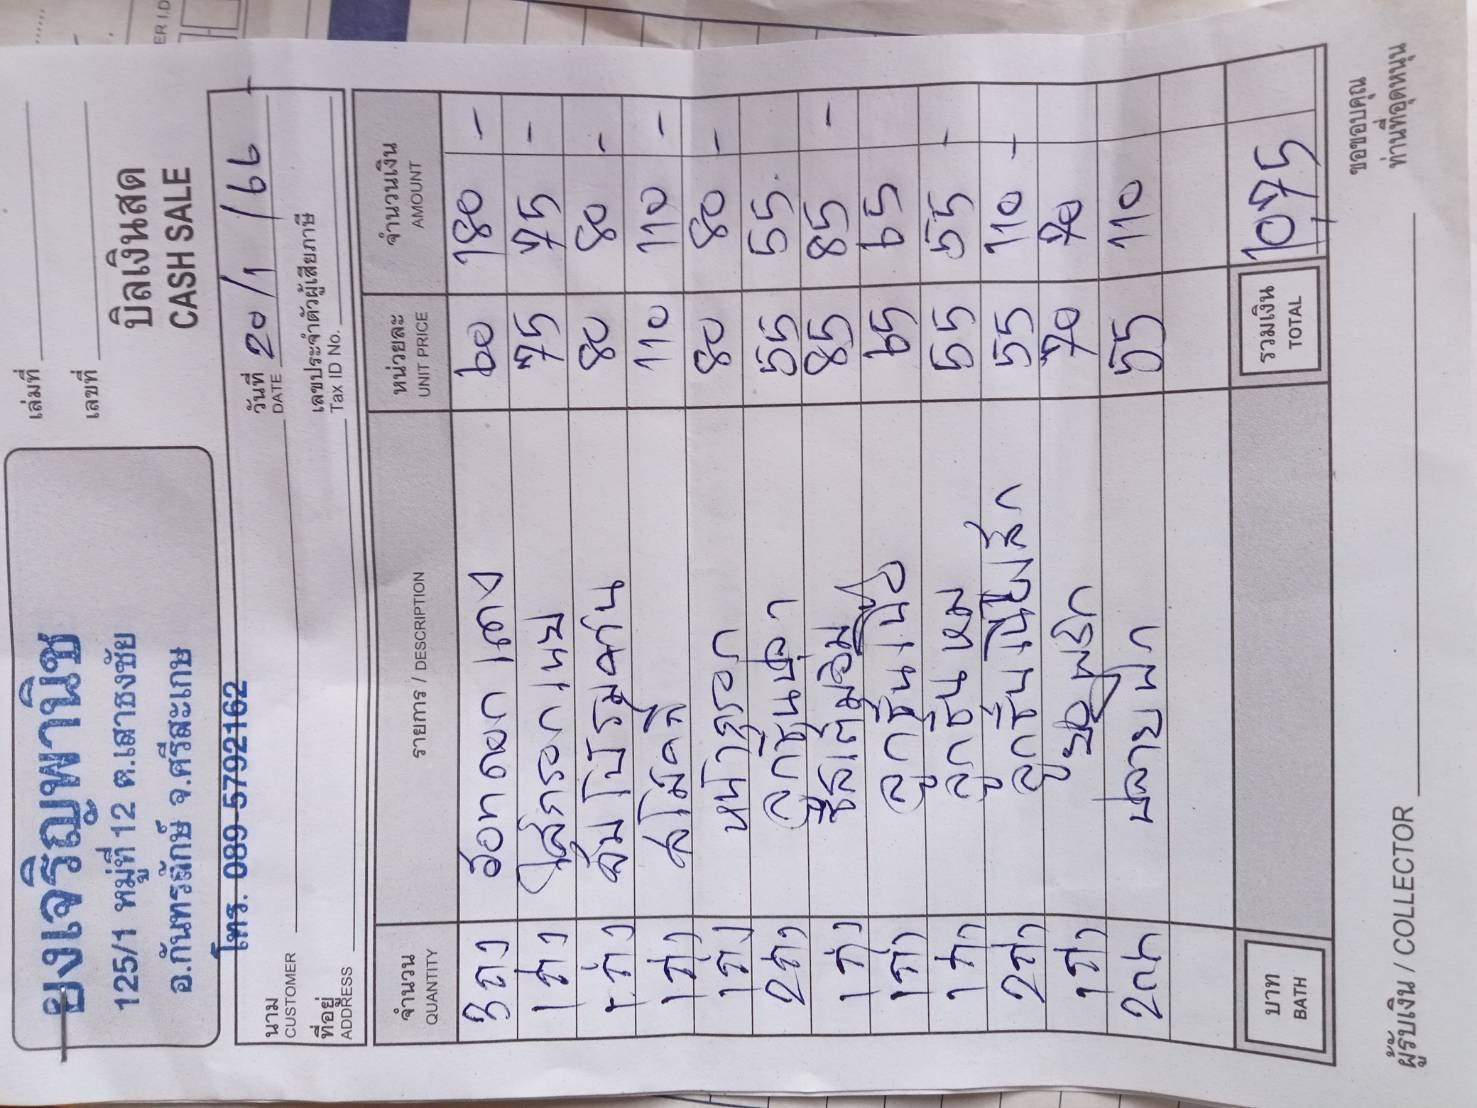 เล่มที่
เลขที่
บิลเงินสด
CASH SALE
ยงเจริญพานิช
125/1 หมู่ที่ 12 ต.เสาธงชัย
อ.กันทรลักษ์ จ.ศรีสะเกษ
โทร. 089-5792162
นาม
CUSTOMER
วันที่ 20/1/66
DATE
ที่อยู่
ADDRESS
เลขประจำตัวผู้เสียภาษี
Tax ID No.
จำนวน รายการ / DESCRIPTION หน่วยละ จำนวนเงิน
QUANTITY UNIT PRICE AMOUNT
3 ถุง ฮอทดอกแดง 60 180 -
1 ถุง ไส้กรอกแหย 75 75 -
1 ถุง 80 80 -
1 ถุง สโมคกี้ 110 110 -
1 ถุง หน้ากรอก 80 80 -
2 ถุง ลูกชิ้นปลา 55 55
1 ถุง ชีสเต็มอิ่ม 85 85 -
1 ถุง ลูกชิ้นเนื้อ 65 65
1 ถุง ลูกชิ้นหมู 55 55 -
2 ถุง ลูกชิ้น 55 110 -
1 ถุง ปูพริก 70 70
55 110
บาท
BATH
รวมเงิน 1075
TOTAL
ขอขอบคุณ
ท่านที่อุดหนุน
ผู้รับเงิน / COLLECTOR